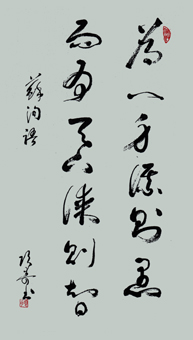 為一身謀則愚
而為天下謀則智
蘇洵語